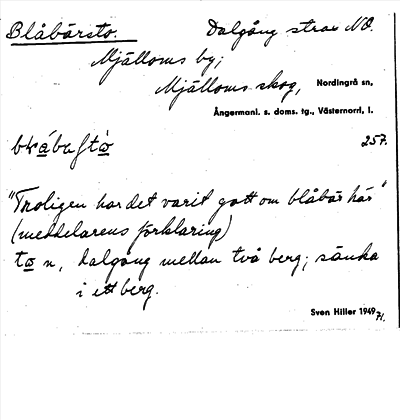 Blåbärsto. Dalgång strax NO.
Mjälloms by;
Mjälloms skog, Nordingrå sn,
Ångermanl. s. doms. tg., Västernorrl, l.
257.
"Troligen har det varit gott om blåbär här"
(meddelarens förklaring)
to n, dalgång mellan två berg; sänka
i ett berg.
Sven Hiller 1949